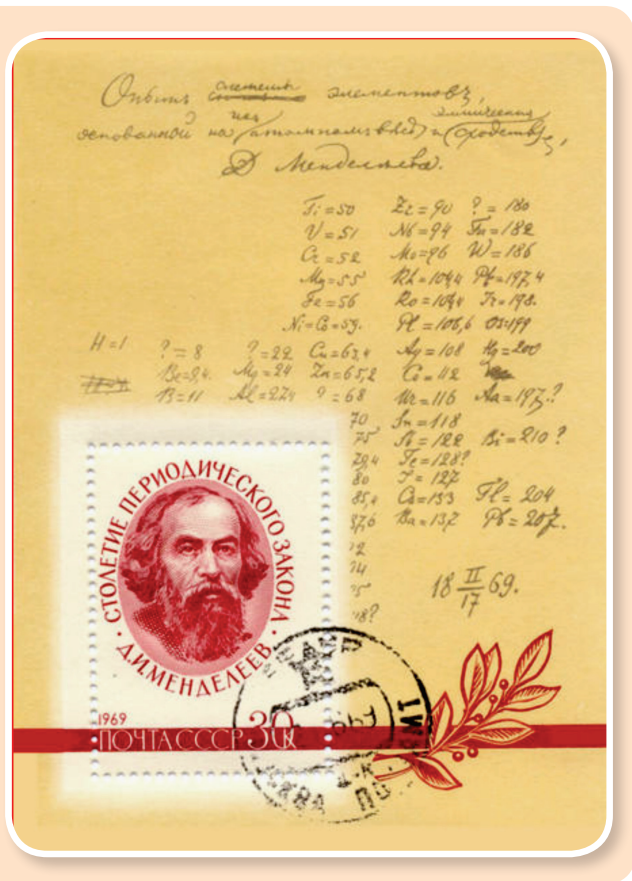 Опытъ системы элементовъ,
основанной на ихъ атомномъ вѣсѣ и химическомъ сходствѣ,
Д Менделѣева.
Ti=50 Zr=90 ?=180
V=51 Nb=94 Ta=182
Cr=52 Mo=96 W=186
Mn=55 Rh=104,4 Pt=197,4
Fe=56 Ru=104,4 Ir=198.
Ni=Co=59. Pl=106,6 Os=199
H=1 ?=8 ?=22 Cu=63,4 Ag=108 Hg=200
Be=9,4 Mg=24 Zn=65,2 Cd=112
B=11 Al=27,4 ?=68 Ur=116 Au=197?
70 Sn=118
75 Sb=122 Bi=210?
79,4 Te=128?
80 I=127
85,4 Cs=133 Tl=204
87,6 Ba=137 Pb=207.
18 II/17 69.
СТОЛЕТИЕ ПЕРИОДИЧЕСКОГО ЗАКОНА
Д.И.МЕНДЕЛЕЕВ
1969
ПОЧТА СССР 30к